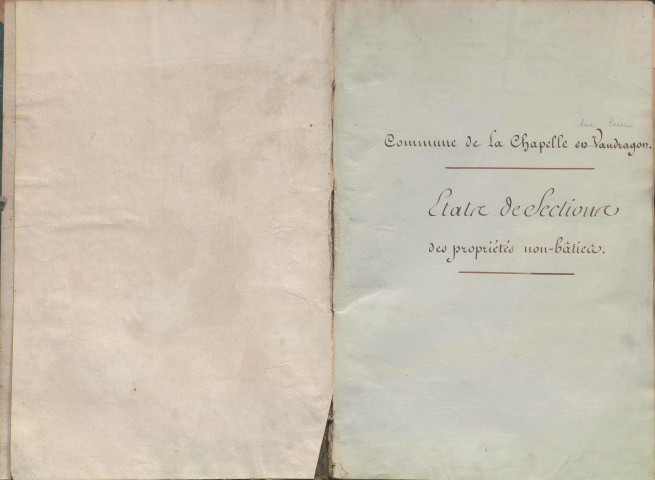 Commune de La Chapelle en Vaudragon.
Etats de Sections
des propriétés non-bâties.